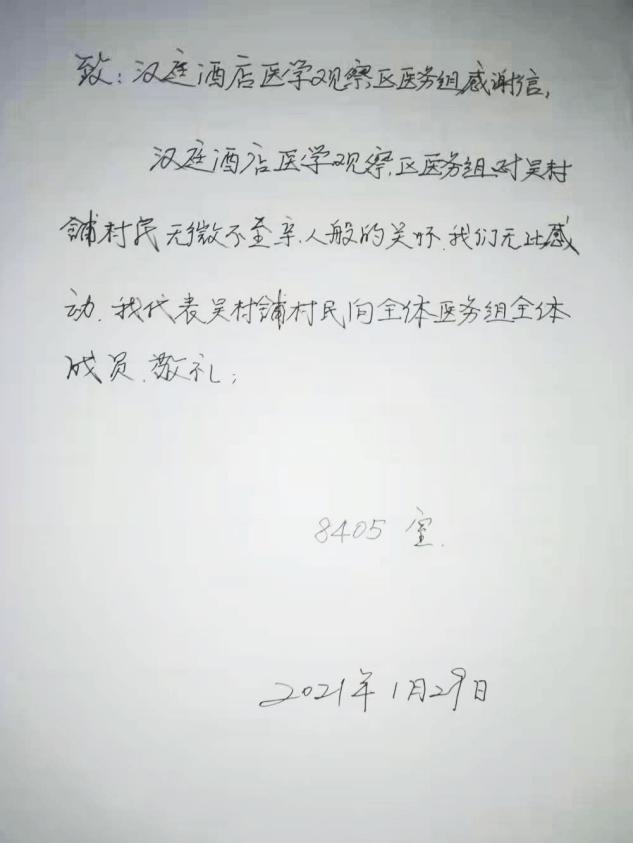 致：汉庭酒店医学观察区医务组感谢信，
汉庭酒店医学观察区医务组对吴村
铺村民无微不至亲人般的关怀.我们无比感
动.我代表吴村铺村民向全体医务组全体
成员.敬礼；
8405室.
2021年1月29日